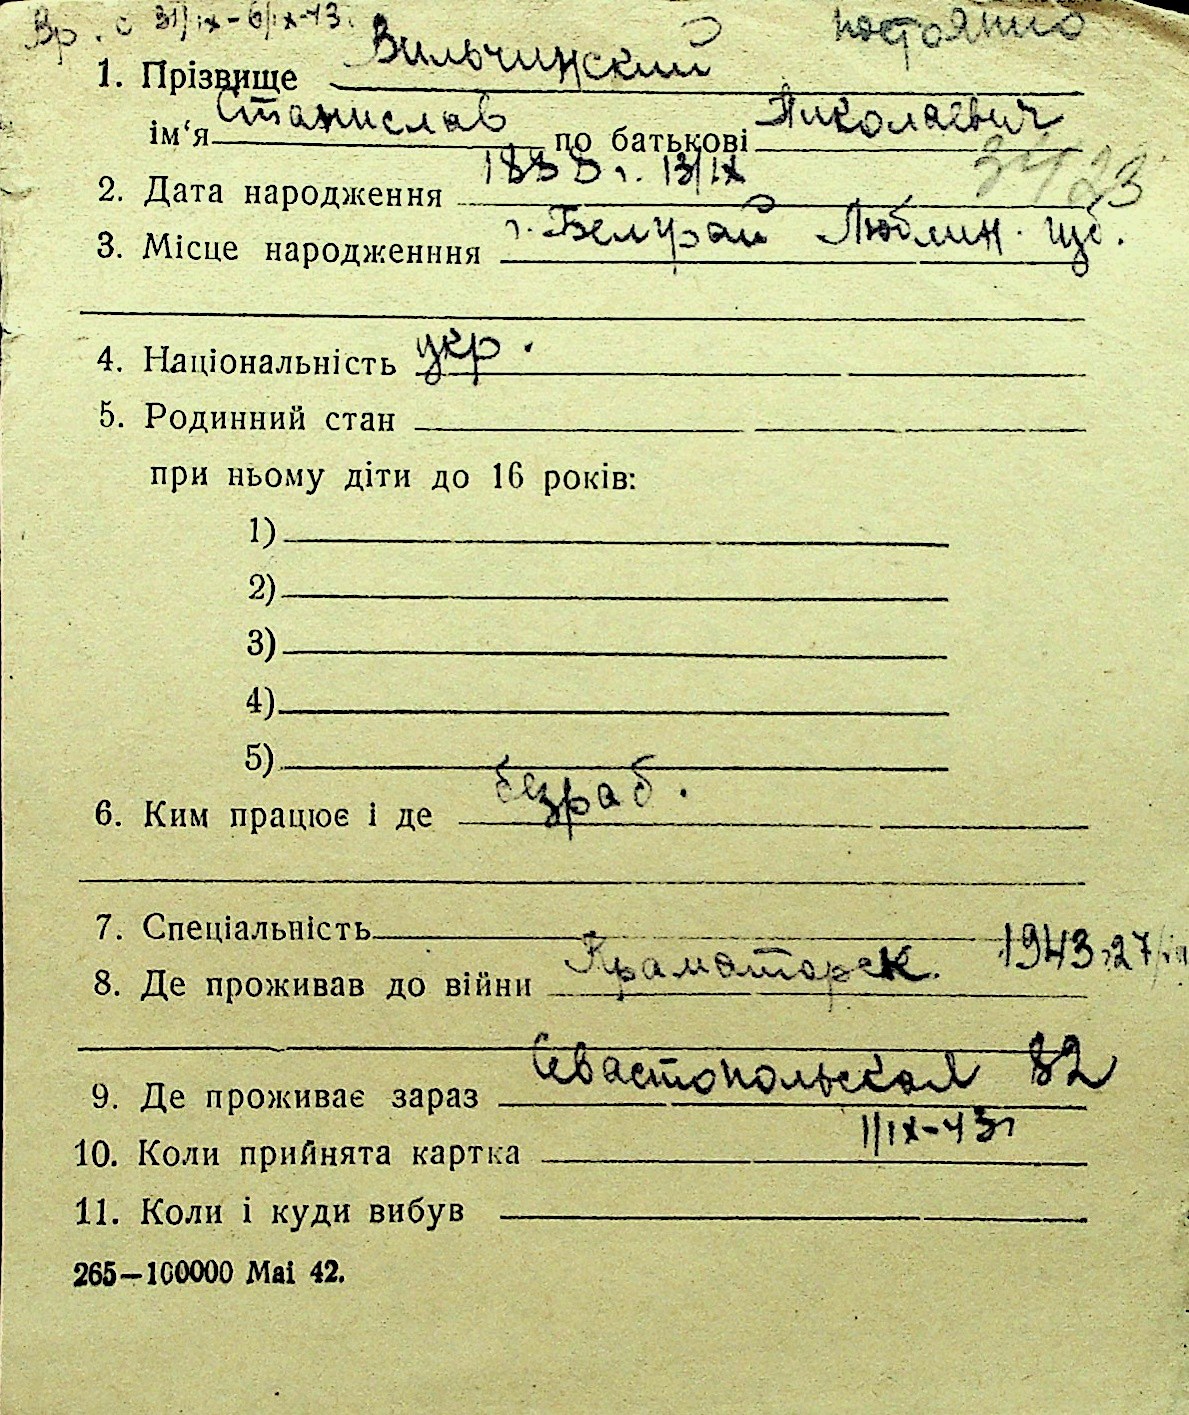 Вр. с 31/IX-6/IX-43. постоянно
1. Прізвище Вильчинский
ім'я Станислав по батькові Николаевич
3423
2. Дата народження 1888 г. 13/IX
3. Місце народженння г. Белграй Люблин. губ.
4. Національність укр.
5. Родинний стан
при ньому діти до 16 років:
1)
2)
3)
4)
5)
6. Ким працює і де безраб.
7. Спеціальність
8. Де проживав до війни Краматорск. 1943 27/
9. Де проживає зараз Севастопольская 82
10. Коли прийнята картка 1/IX-43г
11. Коли і куди вибув
265—100000 Mai 42.